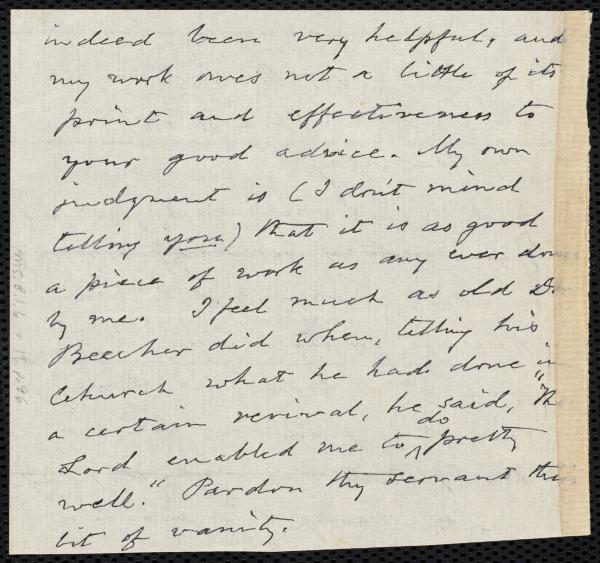 indeed been very helpful, and
my work owes not a little of its
point and effectiveness to
your good advice. My own
judgment is (I don't mind
telling you) that it is as good
a piece of work as any ever done
by me. I feel much as old Dr
Beecher did when, telling his
Church what he had done in
a certain revival, he said, "The
Lord enabled me to do pretty
well." Pardon thy servant this
bit of vanity.